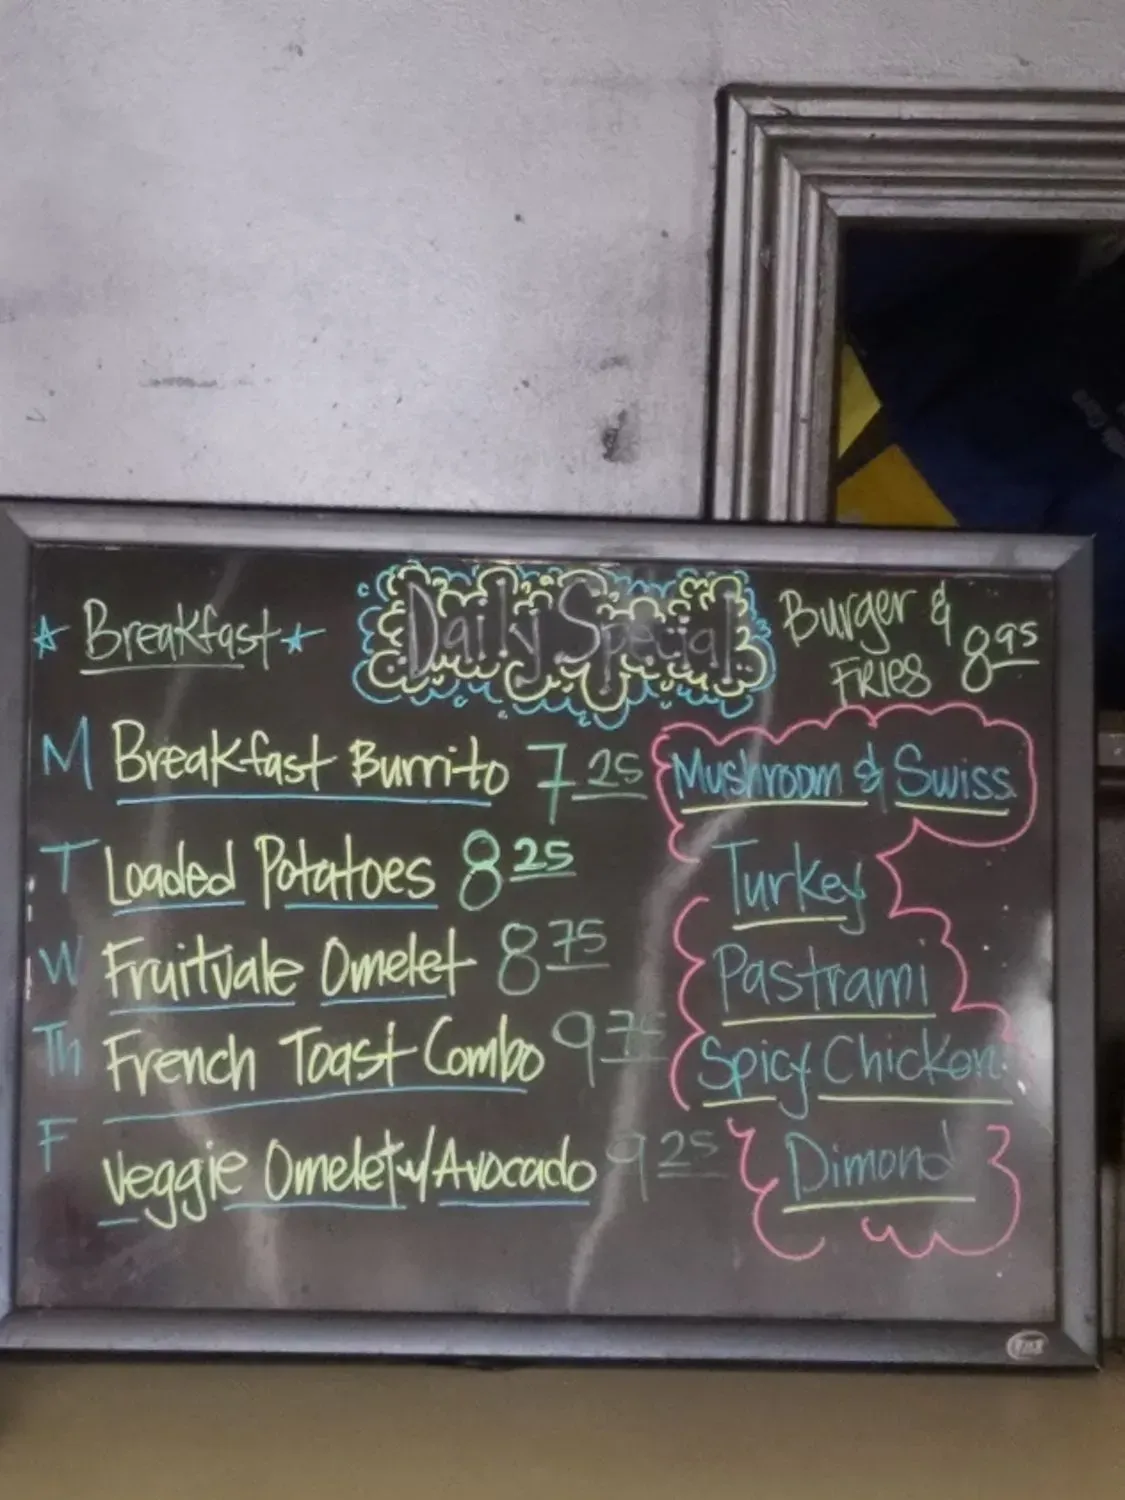 Daily Special
Breakfast
M Breakfast Burrito 7 25
T Loaded Potatoes 8 25
W Fruitvale Omelet 8 75
Th French Toast Combo 9 75
F Veggie Omelet w/ Avocado 9 25
Burger &
FRIES 8 95
Mushroom & Swiss
Turkey
Pastrami
Spicy Chicken
Dimond